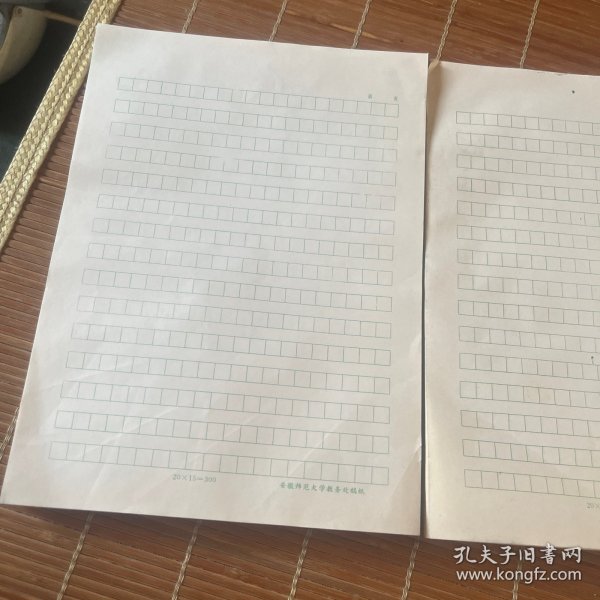 第 页
20×15=300
安徽师范大学教务处稿纸
20×
孔夫子旧书网
www.kongfz.com